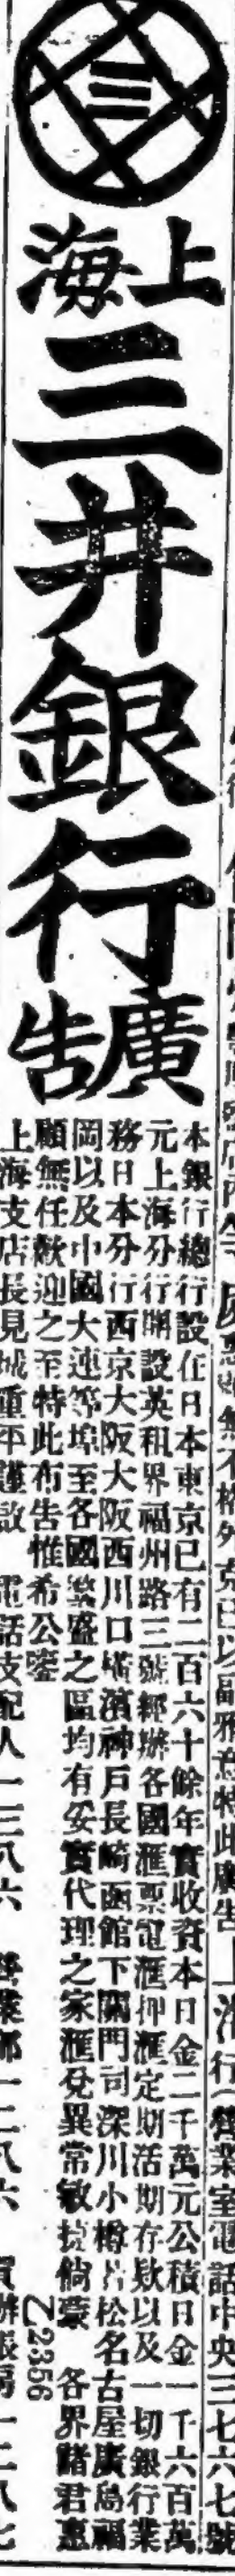 三
上海
三井銀行
廣告
本銀行總行設在日本東京已有二百六十餘年實收資本日金二千萬元公積日金一千六百萬
元上海分行開設英租界福州路三號郷辦各國滙票電滙押滙定期活期存款以及一切銀行業
務日本分行西京大阪大阪西川口橫濱神戶長崎函館下關門司深川小樽若松名古屋廣島福
岡以及中國大連等埠至各國繁盛之區均有妥實代理之家滙兌異常敏捷倘蒙各界諸君惠
顧無任歡迎之至特此布告惟希公鑒
Z2356
上海支店長見城重平謹啟 電話支配人一二三八六 營業部一二八六 買辦張 一二八七
无不格外克己以副雅意特此廣告
營業室電話中央三七六七號